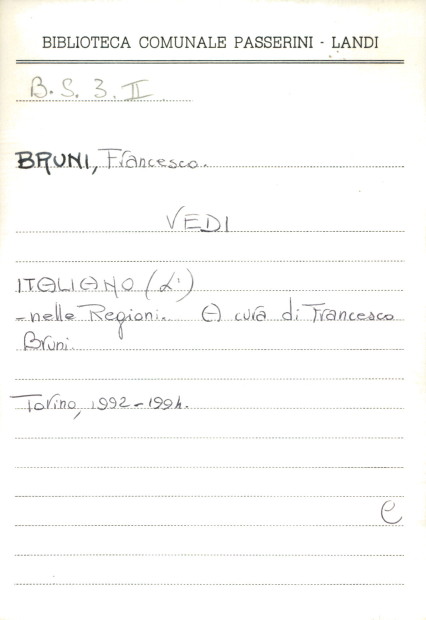 BIBLIOTECA COMUNALE PASSERINI - LANDI
B. S. 3. II
BRUNI, Francesco.
VEDI
ITALIANO (L')
- nelle Regioni. A cura di Francesco
Bruni.
Torino, 1992-1994.
C